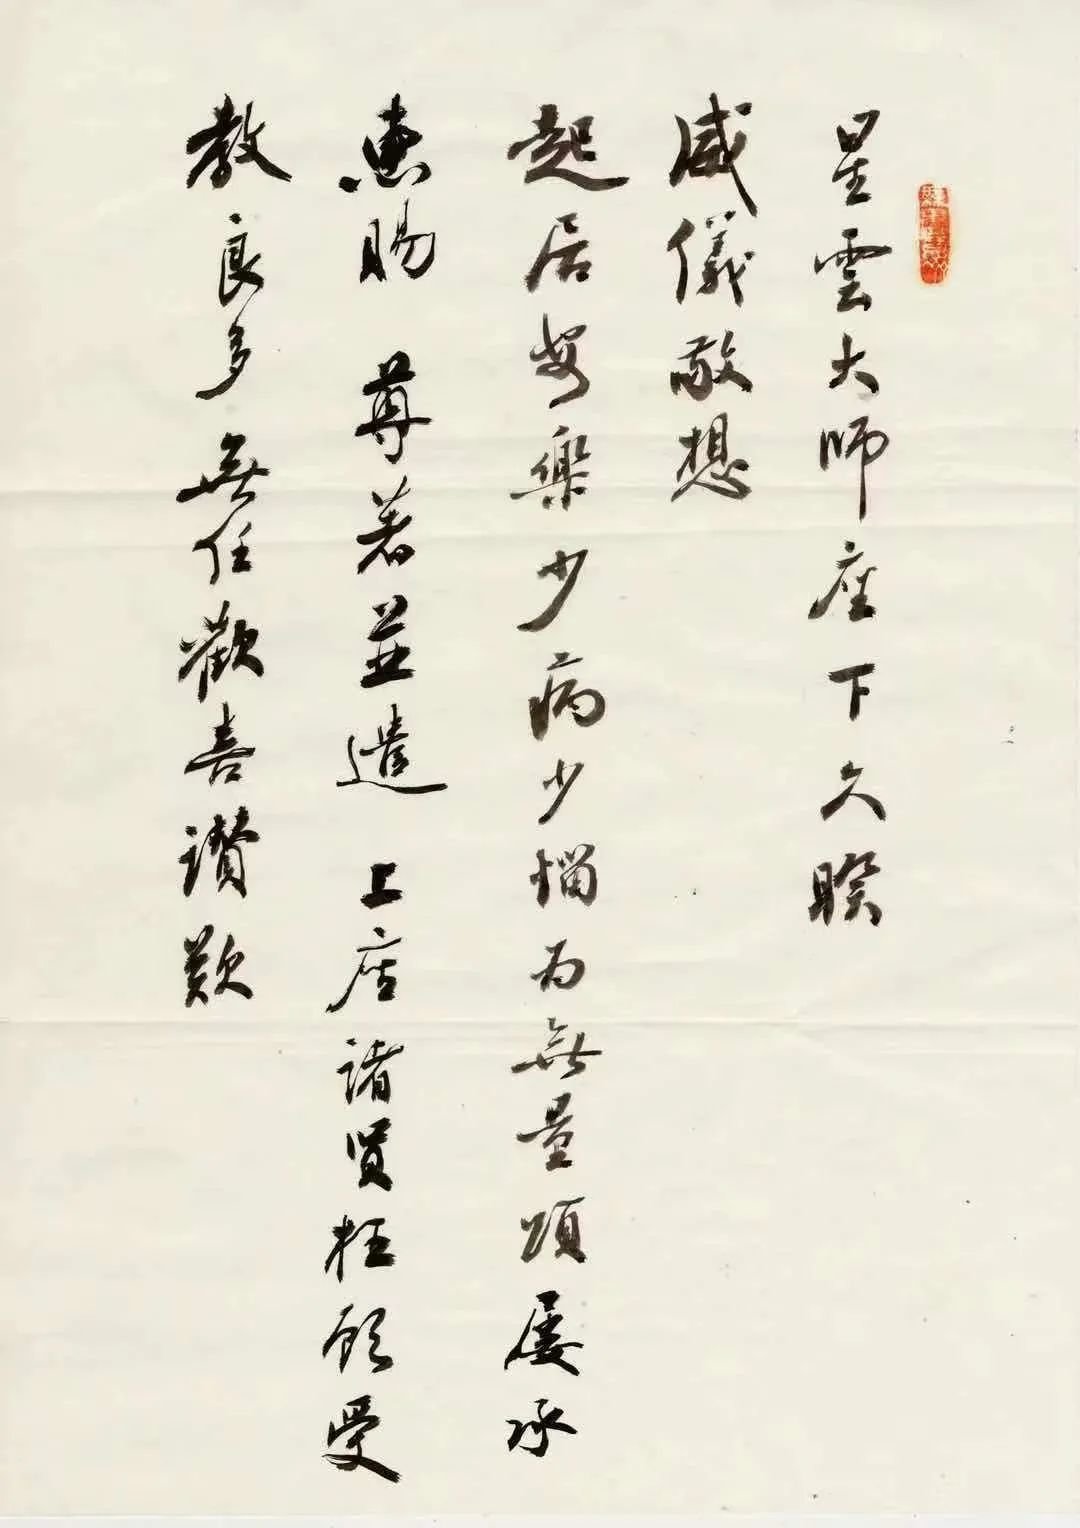 星雲大師座下久睽
威儀敬想
起居安樂少病少惱為無量頌屢承
惠賜 尊著並遣 上座諸賢枉顧受
教良多無任歡喜讚歎